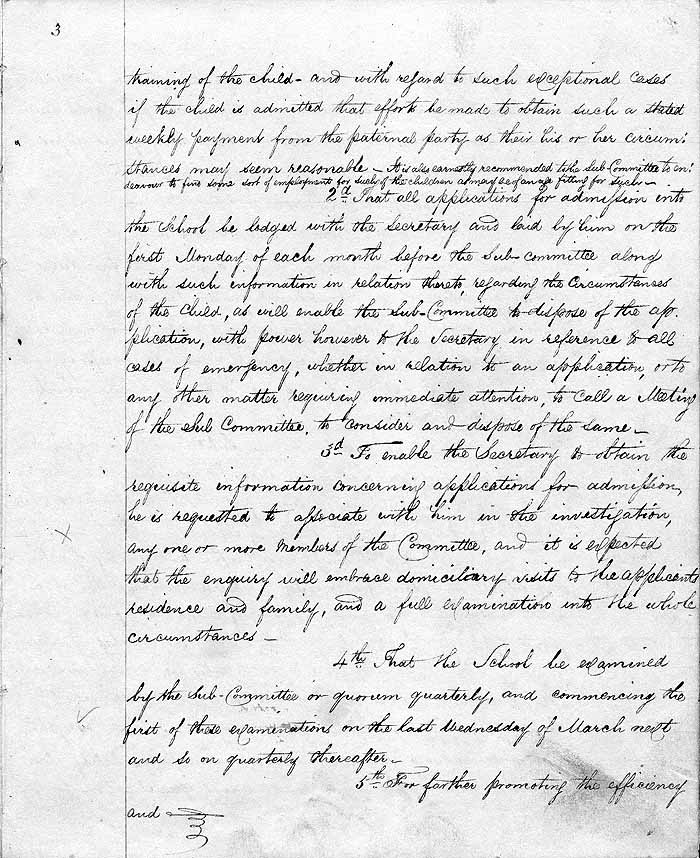 3
training of the child - and with regard to such exceptional cases
if the child is admitted that efforts be made to obtain such a stated
weekly payment from the paternal party as their his or her circum:
stances may seem reasonable - It is also earnestly recommended to the Sub-Committee to en:
deavour to find some sort of employment for such of the children as may be of an age fitting for such -
2d. That all applications for admission into
the School be lodged with the Secretary and laid by him on the
first Monday of each month before the Sub-committee along
with such information in relation thereto, regarding the Circumstances
of the Child, as will enable the Sub-Committee to dispose of the ap.
plication, with power however to the Secretary in reference to all
cases of emergency, whether in relation to an application, or to
any other matter requiring immediate attention, to call a Meeting
of the Sub Committee, to consider and dispose of the same -
3d. To enable the Secretary to obtain the
requisite information concerning applications for admission,
he is requested to associate with him in the investigation,
any one or more Members of the Committee, and it is expected
that the enquiry will embrace domiciliary visits to the applicants
residence and family, and a full examination into the whole
circumstances -
4th. That the School be examined
by the Sub-Committee or quorum quarterly, and commencing the
first of these examinations on the last Wednesday of March next
and so on quarterly thereafter -
5th. For farther promoting the efficiency
and